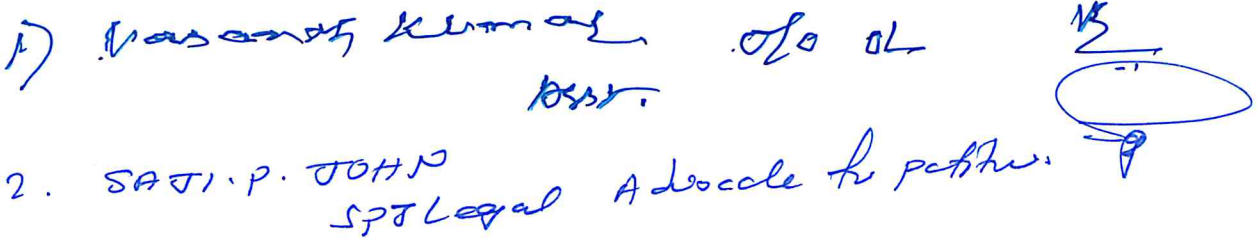 1) Vasanth Kumar o/o OL
Asst.
2. SAJI. P. JOHN
SPJ Legal Advocate for petitioner.